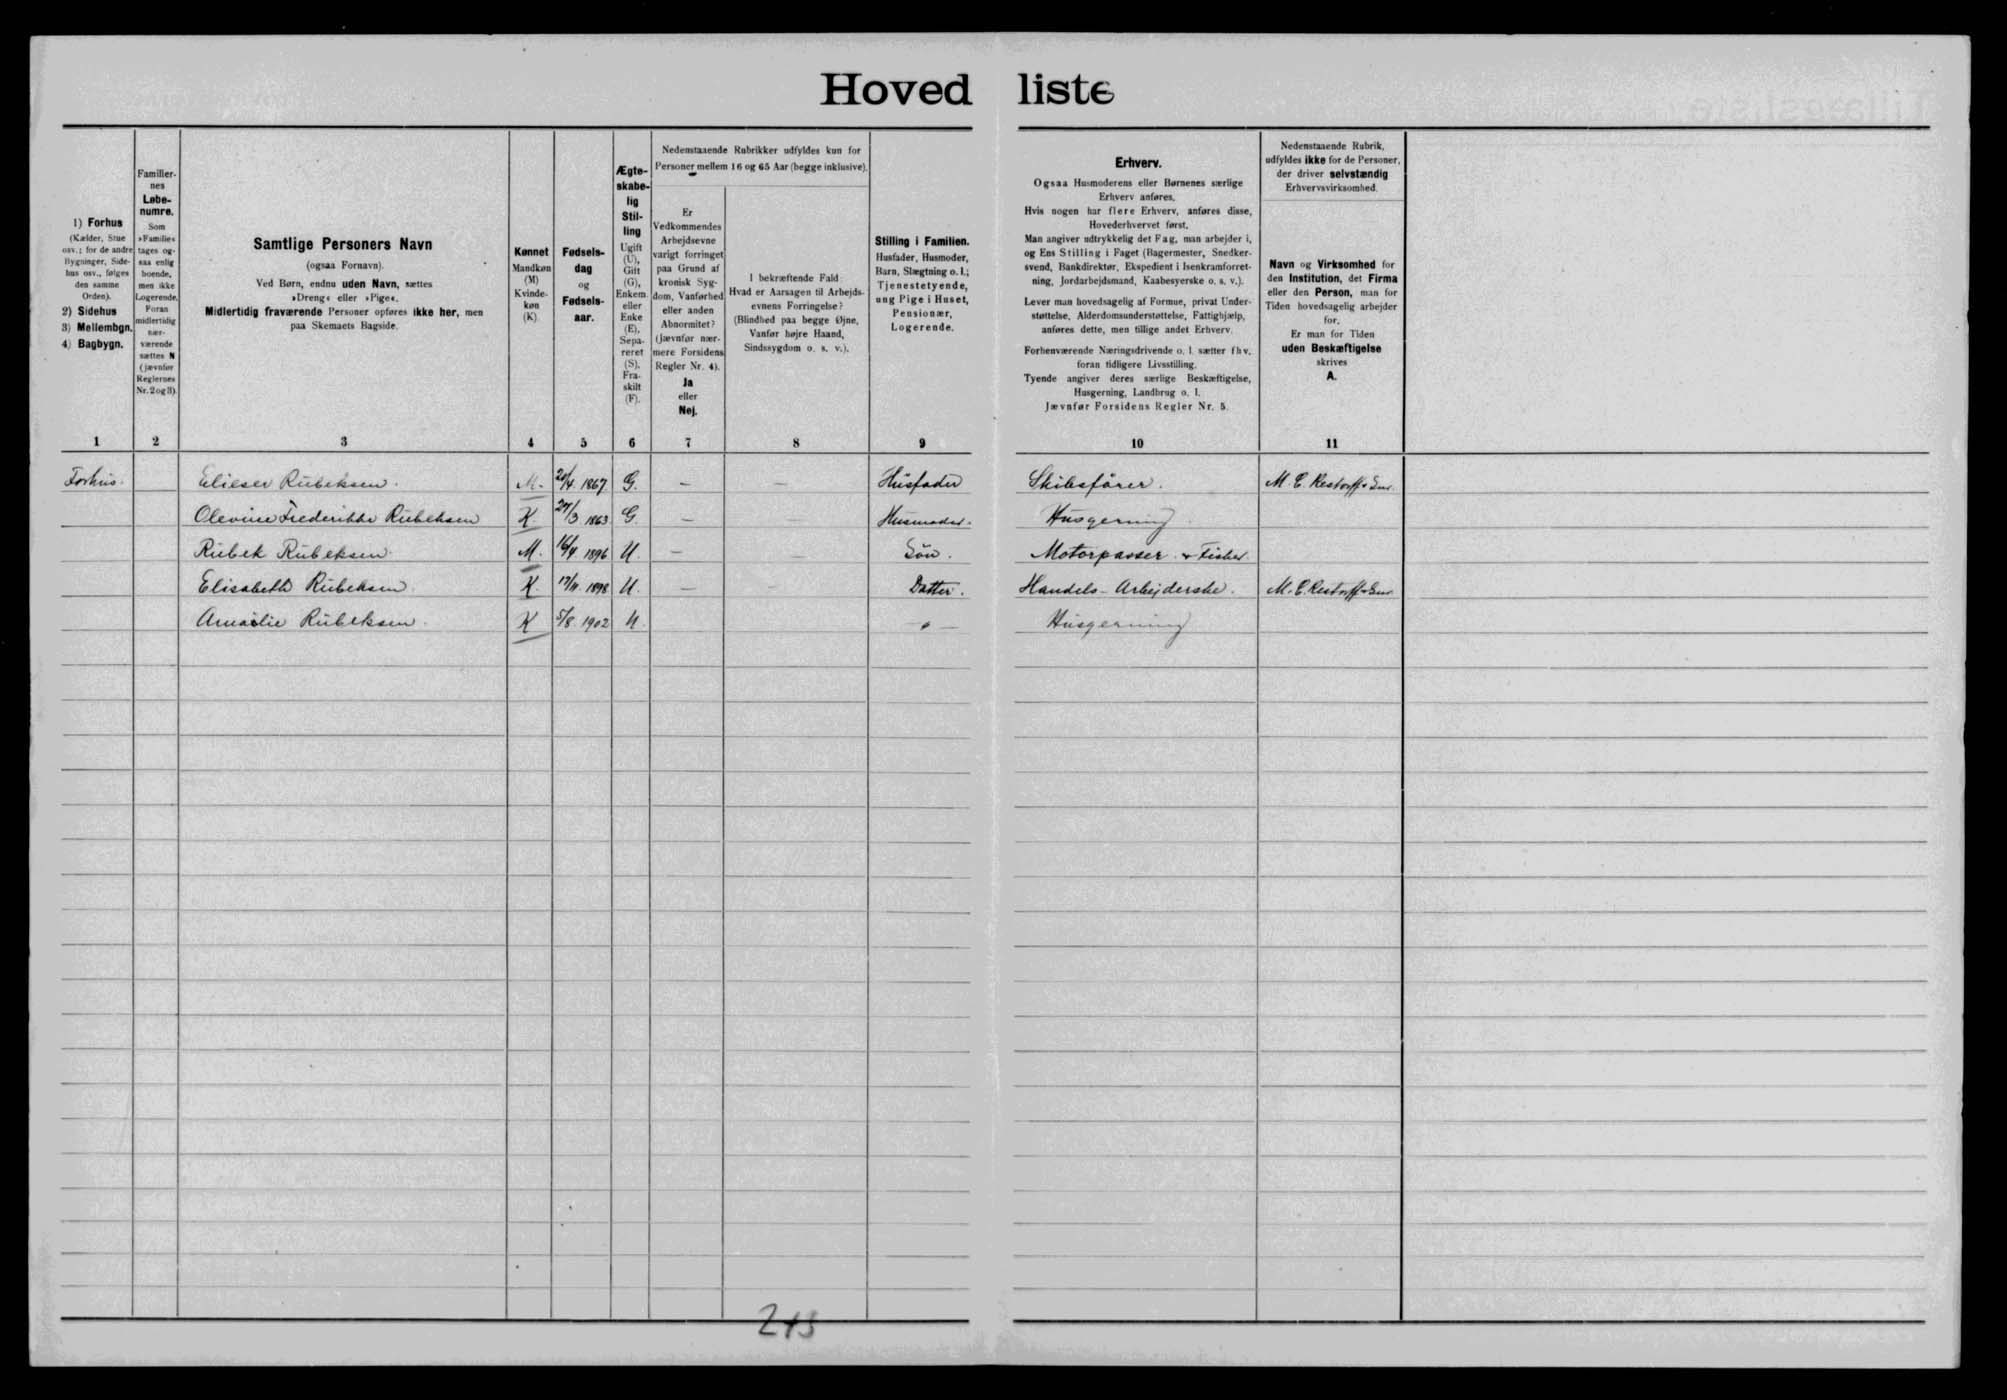 Hovedliste
1) Forhus
(Kælder, Stue
osv.; for de andre
Bygninger, Side-
hus osv., følges
den samme
Orden).
2) Sidehus
3) Mellembgn.
4) Bagbygn.
Familier-
nes
Løbe-
numre.
Som
»Familie«
tages og-
saa enlig
boende,
men ikke
Logerende.
Foran
midlertidig
nær-
værende
sættes N
(jævnfør
Reglernes
Nr. 2 og 3)
Samtlige Personers Navn
(ogsaa Fornavn).
Ved Børn, endnu uden Navn, sættes
»Dreng« eller »Pige«.
Midlertidig fraværende Personer opføres ikke her, men
paa Skemaets Bagside.
Kønnet
Mandkøn
(M)
Kvinde-
køn
(K).
Fødsels-
dag
og
Fødsels-
aar.
Ægte-
skabe-
lig
Stil-
ling
Ugift
(U),
Gift
(G),
Enkem.
eller
Enke
(E),
Sepa-
reret
(S),
Fra-
skilt
(F).
Nedenstaaende Rubrikker udfyldes kun for
Personer mellem 16 og 65 Aar (begge inklusive).
Er
Vedkommendes
Arbejdsevne
varigt forringet
paa Grund af
kronisk Syg-
dom, Vanførhed
eller anden
Abnormitet?
(Jævnfør nær-
mere Forsidens
Regler Nr. 4).
Ja
eller
Nej.
I bekræftende Fald:
Hvad er Aarsagen til Arbejds-
evnens Forringelse?
(Blindhed paa begge Øjne,
Vanfør højre Haand,
Sindssygdom o. s. v.).
Stilling i Familien.
Husfader, Husmoder,
Barn, Slægtning o. l.;
Tjenestetyende,
ung Pige i Huset,
Pensionær,
Logerende.
Erhverv.
Ogsaa Husmoderens eller Børnenes særlige
Erhverv anføres.
Hvis nogen har flere Erhverv, anføres disse,
Hovederhvervet først.
Man angiver udtrykkelig det Fag, man arbejder i,
og Ens Stilling i Faget (Bagermester, Snedker-
svend, Bankdirektør, Ekspedient i Isenkramforret-
ning, Jordarbejdsmand, Kaabesyerske o. s. v.).
Lever man hovedsagelig af Formue, privat Under-
støttelse, Alderdomsunderstøttelse, Fattighjælp,
anføres dette, men tillige andet Erhverv.
Forhenværende Næringsdrivende o. l. sætter fhv.
foran tidligere Livsstilling.
Tyende angiver deres særlige Beskæftigelse,
Husgerning, Landbrug o. l.
Jævnfør Forsidens Regler Nr. 5.
Nedenstaaende Rubrik,
udfyldes ikke for de Personer,
der driver selvstændig
Erhvervsvirksomhed.
Navn og Virksomhed for
den Institution, det Firma
eller den Person, man for
Tiden hovedsagelig arbejder
for.
Er man for Tiden
uden Beskæftigelse
skrives
A.
1 2 3 4 5 6 7 8 9 10 11
Forhus. Elieser Rubeksen. M. 20/4 1867 G. — — Husfader Skibsfører. M. C. Restorff & Sn.
Olevine Frederikke Rubeksen K. 27/3 1863 G. — — Husmoder. Husgerning
Rubek Rubeksen M. 16/4 1896 U. — — Søn. Motorpasser & Fisker.
Elisabeth Rubeksen. K. 17/11 1898 U. — — Datter. Handels-Arbejderske. M. C. Restorff & Sn.
Amalie Rubeksen. K 5/8 1902 U. — " — Husgerning